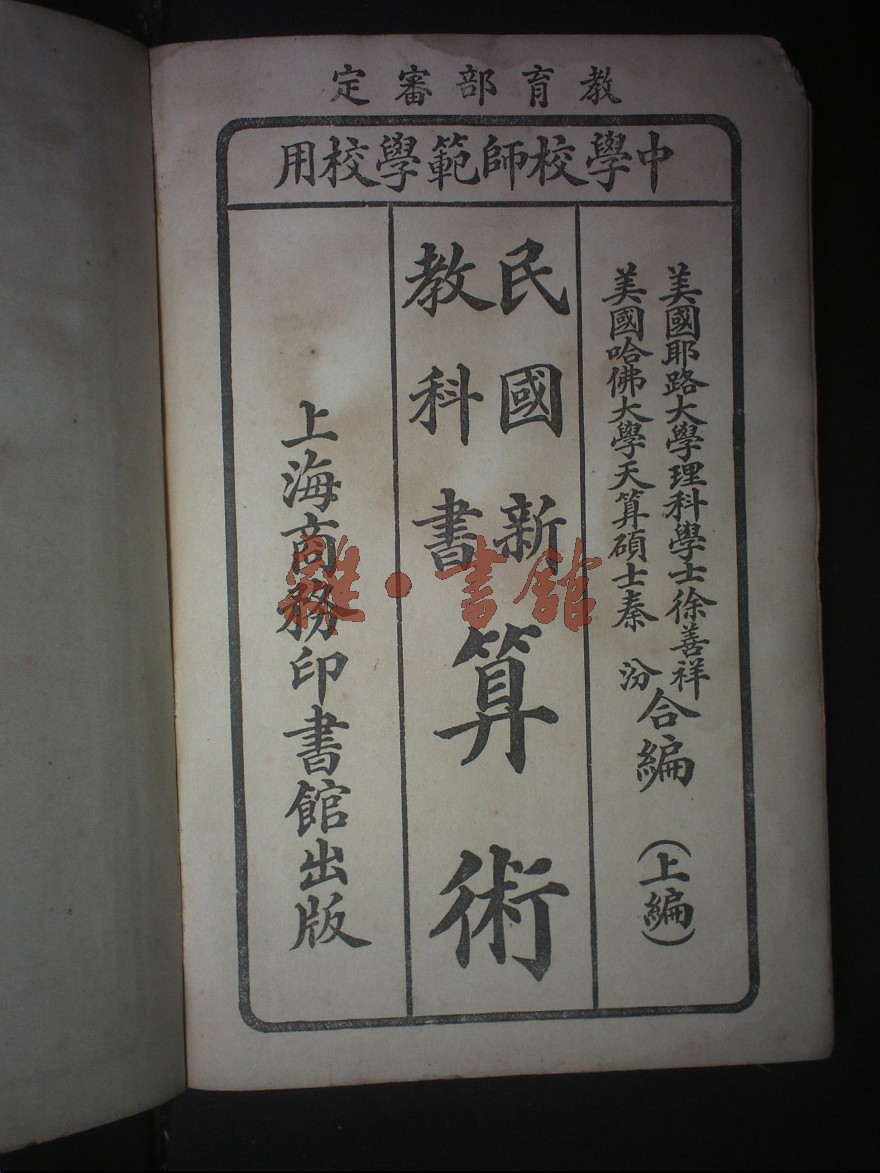 教育部審定
中學校師範學校用
美國耶路大學理科學士徐善祥
美國哈佛大學天算碩士秦 汾
合編 (上編)
民國新
教科書
算術
上海商務印書館出版
雜·書館